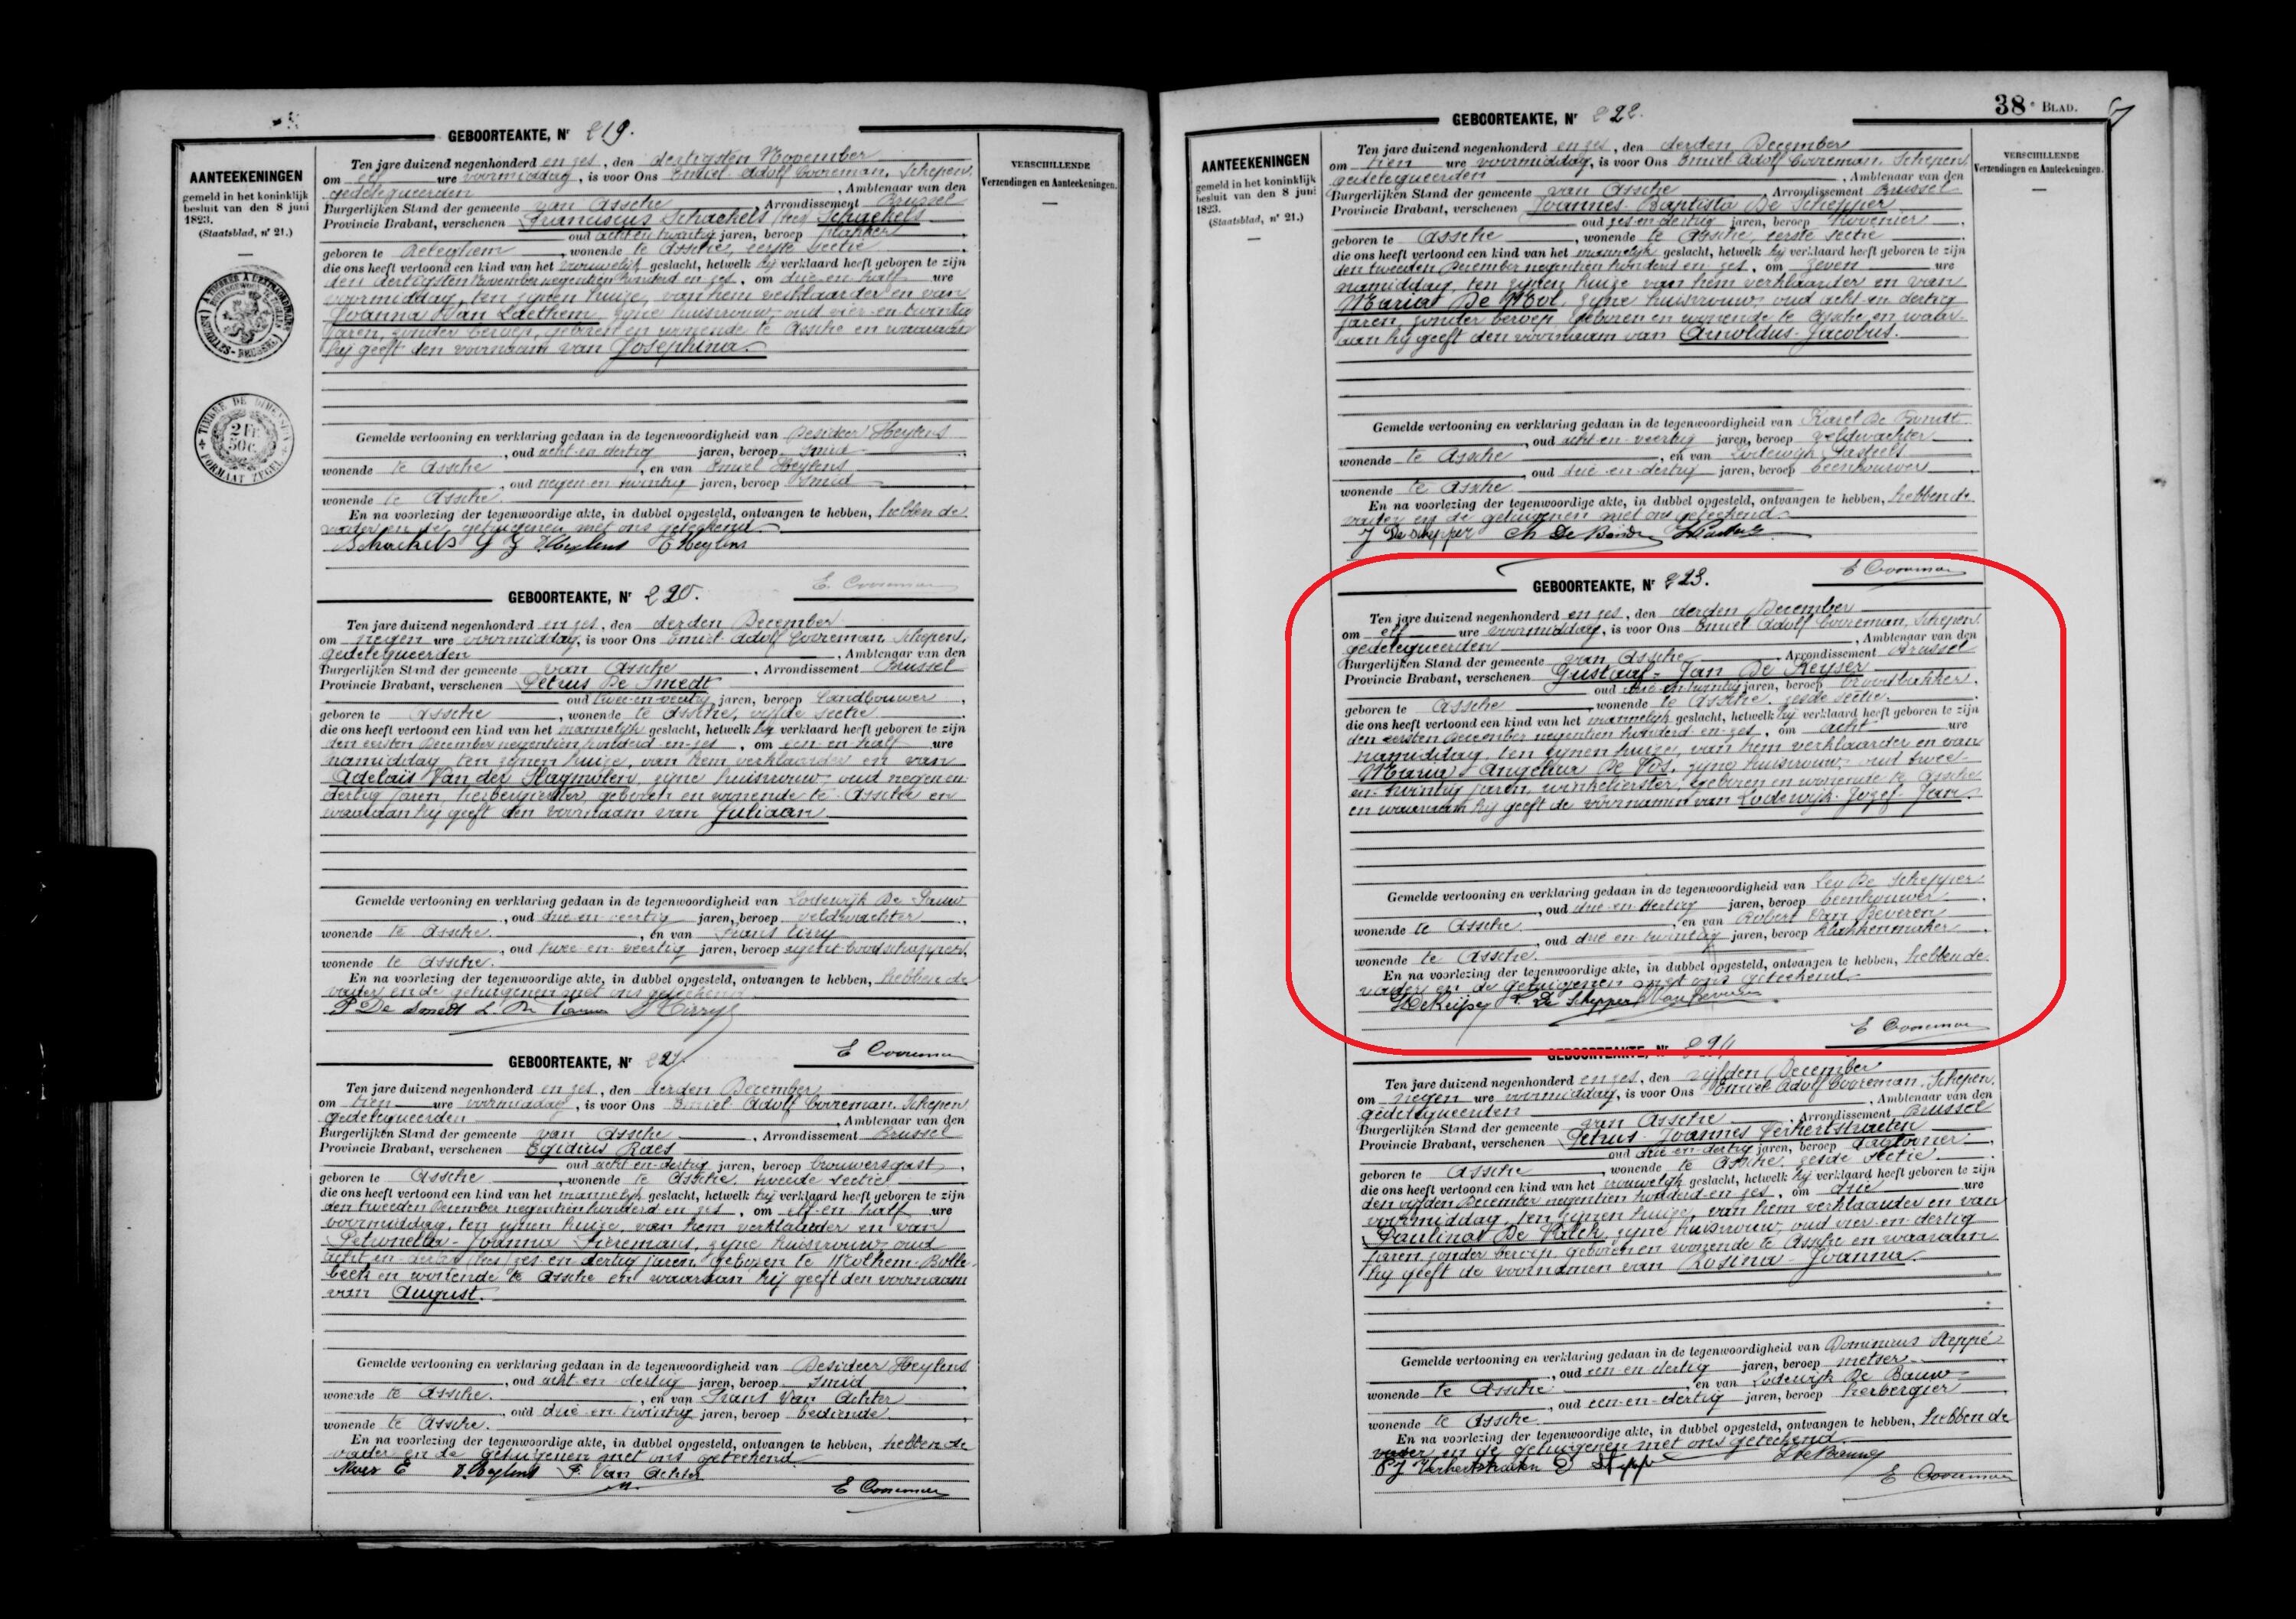 GEBOORTEAKTE, Nr 219.
AANTEEKENINGEN
gemeld in het koninklijk
besluit van den 8 juni
1823.
(Staatsblad, nr 21.)
TIMBRE DE DIMENSION
2 Fr.
50 c.
FORMAAT ZEGEL
Ten jare duizend negenhonderd en zes, den dertigsten November
om elf ure voormiddag, is voor Ons Emiel Adolf Cooreman, Schepen
gedelegueerden, Ambtenaar van den
Burgerlijken Stand der gemeente van Assche, Arrondissement Brussel
Provincie Brabant, verschenen Franciscus Schackels Schackels
oud acht en twintig jaren, beroep plakker
geboren te Releghem, wonende te Assche, eerste sectie
die ons heeft vertoond een kind van het vrouwelijk geslacht, hetwelk hij verklaard heeft geboren te zijn
den dertigsten November negentien honderd en zes, om drie en half ure
voormiddag, ten zijnen huize, van hem verklaarder en van
Joanna Van Laethem, zijne huisvrouw, oud vier en twintig
jaren, zonder beroep, geboren en wonende te Assche en waaraan
hij geeft den voornaam van Josephina.
Gemelde vertooning en verklaring gedaan in de tegenwoordigheid van Desideer Heylens
, oud acht-en-dertig jaren, beroep smid
wonende te Assche, en van Emiel Heylens
, oud negen en twintig jaren, beroep smid
wonende te Assche.
En na voorlezing der tegenwoordige akte, in dubbel opgesteld, ontvangen te hebben, hebben de
vader en de getuigenen met ons geteekend.
Schackels D Heylens E Heylens
E Cooreman
VERSCHILLENDE
Verzendingen en Aanteekeningen.
GEBOORTEAKTE, Nr 220.
Ten jare duizend negenhonderd en zes, den derden December
om negen ure voormiddag, is voor Ons Emiel Adolf Cooreman, Schepen,
gedelegueerden, Ambtenaar van den
Burgerlijken Stand der gemeente van Assche, Arrondissement Brussel
Provincie Brabant, verschenen Petrus De Smedt
oud twee-en-veertig jaren, beroep landbouwer,
geboren te Assche, wonende te Assche, vijfde sectie
die ons heeft vertoond een kind van het mannelijk geslacht, hetwelk hij verklaard heeft geboren te zijn
den eersten December negentien honderd en zes, om een en half ure
namiddag, ten zijnen huize, van hem verklaarder en van
Adelais Van der Slagmolen, zijne huisvrouw, oud negen en
dertig jaren, herbergierster, geboren en wonende te Assche en
waaraan hij geeft den voornaam van Juliaan.
Gemelde vertooning en verklaring gedaan in de tegenwoordigheid van Lodewijk De
, oud drie-en-veertig jaren, beroep veldwachter,
wonende te Assche, en van Frans
, oud twee-en-veertig jaren, beroep agent-boodschapper,
wonende te Assche.
En na voorlezing der tegenwoordige akte, in dubbel opgesteld, ontvangen te hebben, hebben de
vader en de getuigenen met ons geteekend
P De Smedt
E Cooreman
GEBOORTEAKTE, Nr 221.
Ten jare duizend negenhonderd en zes, den derden December
om tien ure voormiddag, is voor Ons Emiel Adolf Cooreman, Schepen
gedelegueerden, Ambtenaar van den
Burgerlijken Stand der gemeente van Assche, Arrondissement Brussel
Provincie Brabant, verschenen Egidius Raes
oud acht-en-dertig jaren, beroep brouwersgast,
geboren te Assche, wonende te Assche, tweede sectie
die ons heeft vertoond een kind van het mannelijk geslacht, hetwelk hij verklaard heeft geboren te zijn
den tweeden December negentien honderd en zes, om elf en half ure
voormiddag, ten zijnen huize, van hem verklaarder en van
Petronella-Joanna, zijne huisvrouw, oud
zes en dertig jaren, geboren te Molhem-Bolle-
beek en wonende te Assche en waaraan hij geeft den voornaam
van August.
Gemelde vertooning en verklaring gedaan in de tegenwoordigheid van Desideer Heylens
, oud acht-en-dertig jaren, beroep smid
wonende te Assche, en van Frans Van Achter
, oud drie-en-twintig jaren, beroep bediende,
wonende te Assche.
En na voorlezing der tegenwoordige akte, in dubbel opgesteld, ontvangen te hebben, hebben de
vader en de getuigenen met ons geteekend
D. Heylens F. Van Achter
E Cooreman
38e BLAD.
GEBOORTEAKTE, Nr 222.
AANTEEKENINGEN
gemeld in het koninklijk
besluit van den 8 juni
1823.
(Staatsblad, nr 21.)
Ten jare duizend negenhonderd en zes, den derden December
om tien ure voormiddag, is voor Ons Emiel Adolf Cooreman, Schepen
gedelegueerden, Ambtenaar van den
Burgerlijken Stand der gemeente van Assche, Arrondissement Brussel
Provincie Brabant, verschenen Joannes-Baptista De Schepper
oud zes-en-dertig jaren, beroep hovenier,
geboren te Assche, wonende te Assche, eerste sectie
die ons heeft vertoond een kind van het mannelijk geslacht, hetwelk hij verklaard heeft geboren te zijn
den tweeden December negentien honderd en zes, om zeven ure
namiddag, ten zijnen huize van hem verklaarder en van
Maria De Mol, zijne huisvrouw, oud acht en dertig
jaren, zonder beroep, geboren en wonende te Assche en waar-
aan hij geeft den voornaam van Arnoldus-Jacobus.
Gemelde vertooning en verklaring gedaan in de tegenwoordigheid van Karel De Bondt
, oud acht-en-veertig jaren, beroep veldwachter
wonende te Assche, en van Lodewijk Pasteels
, oud drie-en-dertig jaren, beroep beenhouwer
wonende te Assche.
En na voorlezing der tegenwoordige akte, in dubbel opgesteld, ontvangen te hebben, hebben de
vader en de getuigenen met ons geteekend.
J De Schepper Ch De Bondt
E Cooreman
VERSCHILLENDE
Verzendingen en Aanteekeningen.
GEBOORTEAKTE, Nr 223.
Ten jare duizend negenhonderd en zes, den derden December
om elf ure voormiddag, is voor Ons Emiel Adolf Cooreman, Schepen
gedelegueerden, Ambtenaar van den
Burgerlijken Stand der gemeente van Assche, Arrondissement Brussel
Provincie Brabant, verschenen Gustaaf-Jan De Keyser
oud drie-en-twintig jaren, beroep broodbakker,
geboren te Assche, wonende te Assche, zesde sectie
die ons heeft vertoond een kind van het mannelijk geslacht, hetwelk hij verklaard heeft geboren te zijn
den eersten December negentien honderd en zes, om acht ure
namiddag, ten zijnen huize, van hem verklaarder en van
Maria-Angelina De Vos, zijne huisvrouw, oud twee-
en-twintig jaren, winkelierster, geboren en wonende te Assche
en waaraan hij geeft de voornamen van Lodewijk-Jozef-Jan.
Gemelde vertooning en verklaring gedaan in de tegenwoordigheid van Leo De Schepper
, oud drie-en-dertig jaren, beroep beenhouwer
wonende te Assche, en van Robert Van Beveren
, oud drie en twintig jaren, beroep klakkenmaker
wonende te Assche.
En na voorlezing der tegenwoordige akte, in dubbel opgesteld, ontvangen te hebben, hebben de
vader en de getuigenen met ons geteekend.
De Schepper Van Beveren
E Cooreman
GEBOORTEAKTE, Nr 224
Ten jare duizend negenhonderd en zes, den vijfden December
om negen ure voormiddag, is voor Ons Emiel Adolf Cooreman, Schepen,
gedelegueerden, Ambtenaar van den
Burgerlijken Stand der gemeente van Assche, Arrondissement Brussel
Provincie Brabant, verschenen Petrus-Joannes Verhertstraeten
oud drie-en-dertig jaren, beroep daglooner,
geboren te Assche, wonende te Assche, zesde sectie
die ons heeft vertoond een kind van het vrouwelijk geslacht, hetwelk hij verklaard heeft geboren te zijn
den vijfden December negentien honderd en zes, om drie ure
voormiddag, ten zijnen huize, van hem verklaarder en van
Paulina De Valck, zijne huisvrouw, oud vier-en-dertig
jaren, zonder beroep, geboren en wonende te Assche en waaraan
hij geeft de voornamen van Rosina-Joanna.
Gemelde vertooning en verklaring gedaan in de tegenwoordigheid van Dominicus Steppé
, oud een-en-dertig jaren, beroep metser
wonende te Assche, en van Lodewijk De Bauw
, oud een-en-dertig jaren, beroep herbergier
wonende te Assche.
En na voorlezing der tegenwoordige akte, in dubbel opgesteld, ontvangen te hebben, hebben de
vader en de getuigenen met ons geteekend
P J Verhertstraeten D Steppé
E Cooreman